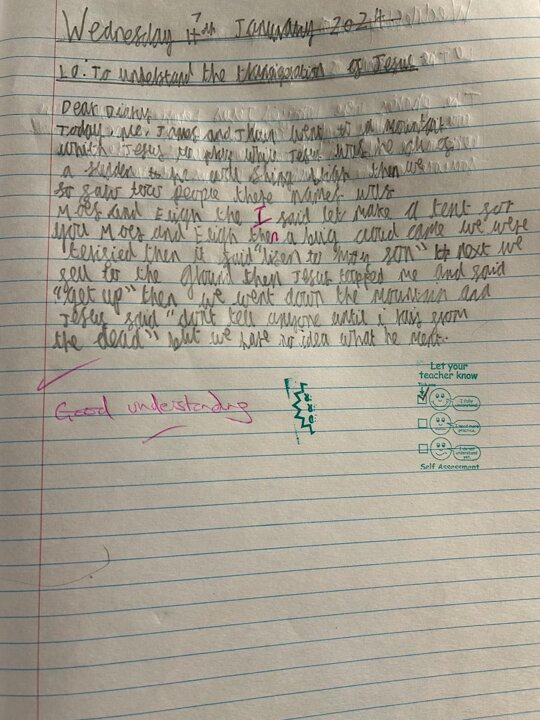 Wednesday 17th January 2024
LO: To understand the transfiguration of Jesus
Dear Diary
Today me, James and Jhon went to a mountain
with Jesus to pray while Jesus was he all of
a sudden to he shing then we
so saw tow people there names was
Moes and Eligh the I said let make a tent for
you Moes and Eligh then a big cloud came we were
terified then it said "lisen to my son" next we
fell to the ground then Jesus tapped me and said
"get up" then we went down the mountain and
Jesus said "don't tell anyone until i riss from
the dead" but we have no idea what he ment.
Good understanding
Let your
teacher know
I fully
understand
I need more
practice.
I do not
understand
yet.
Self Assessment